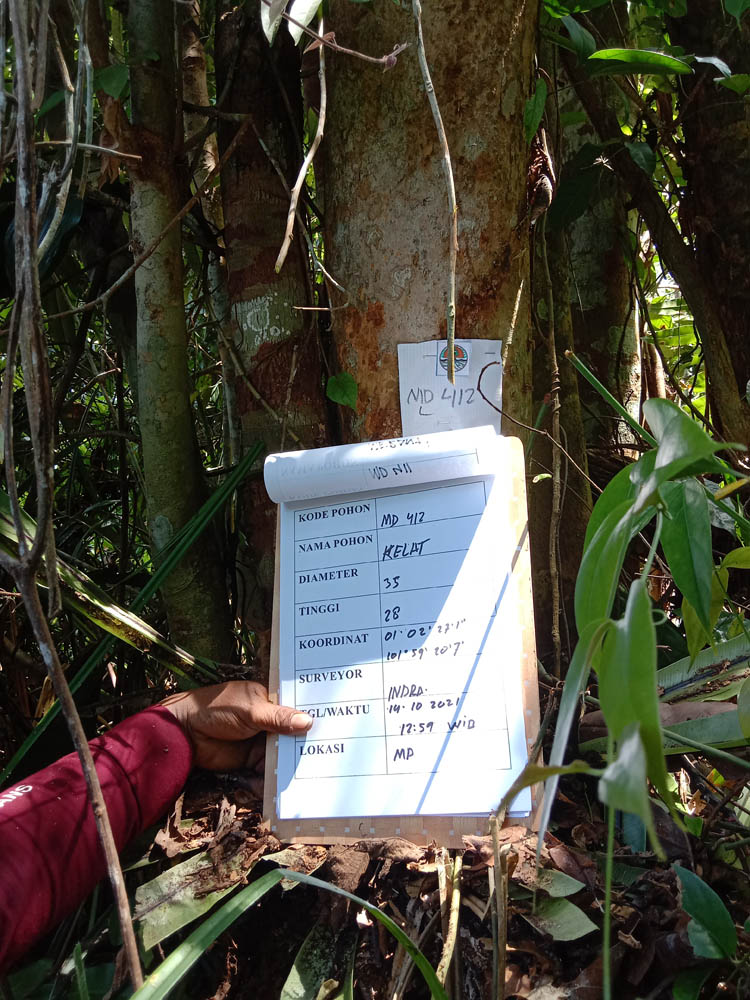 MD 412
MD 411
KODE POHON MD 412
NAMA POHON KELAT
DIAMETER 35
TINGGI 28
KOORDINAT 01° 02' 27.1"
101° 59' 20.7'
SURVEYOR INDRA.
TGL/WAKTU 14-10 2021
12:59 WIB
LOKASI MD